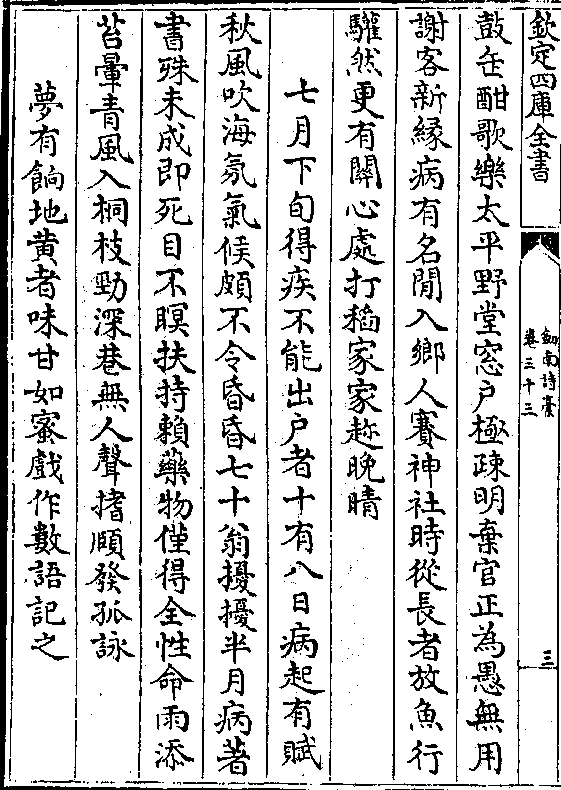 欽定四庫全書
劍南詩稾
卷三十三
三
鼓缶酣歌樂太平野堂窓户極疎明棄官正為愚無用
謝客新縁病有名閒入鄉人賽神社時從長者放魚行
驩然更有關心處打稻家家趂晚晴
七月下旬得疾不能出户者十有八日病起有賦
秋風吹海氛氣候頗不令昏昏七十翁擾擾半月病著
書殊未成即死目不瞑扶持賴藥物僅得全性命雨添
苔暈青風入桐枝勁深巷無人聲搘頤發孤詠
夢有餉地黄者味甘如蜜戲作數語記之